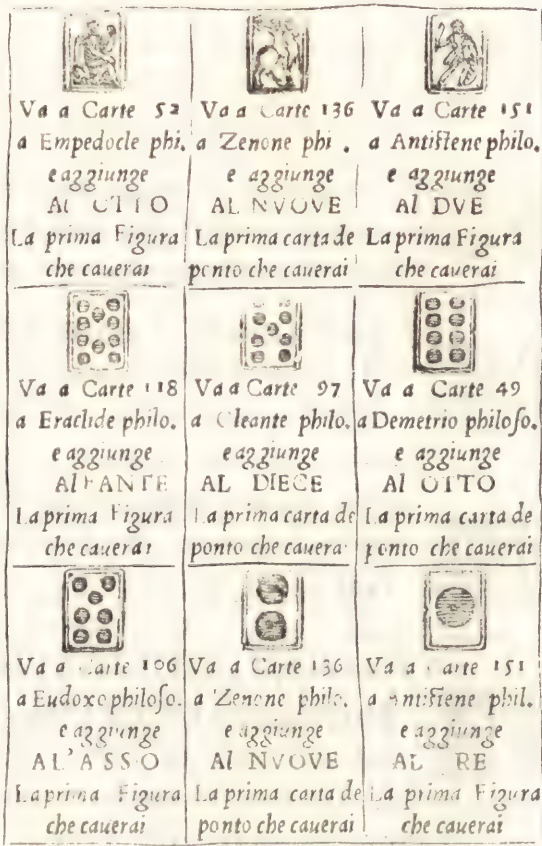 Va a Carte 52
a Empedocle phi.
e aggiunge
Al OTTO
La prima Figura
che cauerai
Va a Carte 136
a Zenone phi .
e aggiunge
AL NVOVE
La prima carta de
ponto che cauerai
Va a Carte 151
a Antistene philo.
e aggiunge
Al DVE
La prima Figura
che cauerai
Va a Carte 118
a Eraclide philo.
e aggiunge
Al FANTE
La prima Figura
che cauerai
Va a Carte 97
a Cleante philo.
e aggiunge
AL DIECE
La prima carta de
ponto che cauera
Va a Carte 49
a Demetrio philoso.
e aggiunge
Al OTTO
La prima carta de
ponto che cauerai
Va a Carte 106
a Eudoxo philoso.
e aggiunge
AL'ASSO
La prima Figura
che cauerai
Va a Carte 136
a Zenone philo.
e aggiunge
Al NVOVE
La prima carta de
ponto che cauerai
Va a Carte 151
a Antistene phil.
e aggiunge
AL RE
La prima Figura
che cauerai